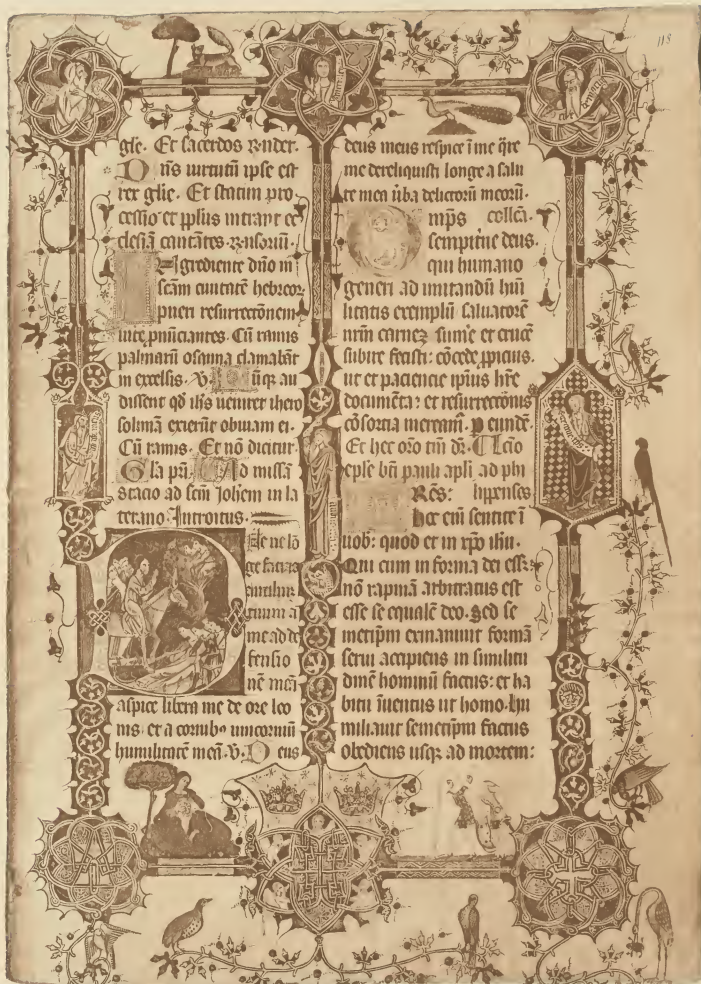 118
glie. Et sacerdos ꝶnder.
Dn̄s uirtutū ipse est
rex glie. Et statim pro
cessio et pplūs intrant ec
clesiā cantātes.
Ingrediente dn̄o in
scām ciuitatē hebreor̄
pueri resurrectōnem
uite pnūciantes. Cū ramis
palmarū osanna clamabāt
in excelsis. ℣. Cūqꝫ au
dissent qd̄ ihs ueniret ihero
solimā exierūt obuiam ei.
Cū ramis. Et nō dicitur.
Glā pr̄i. Ad missā
stacio ad scm̄ Joh̄em in la
terano. Introitus.
Dne ne lō
ge facias
auxiliū
tuum a
me ad de
fensio
nē meā
aspice libera me de ore leo
nis. et a cornibꝰ unicorniū
humilitatē meā. ℣. Deus
deus meus respice ī me q̄re
me dereliquisti longe a salu
te mea ūba delictorū meorū.
mp̄s collcā.
sempitne deus.
qui humano
generi ad imitandū hūi
litatis exemplū saluatorē
nrm̄ carnez sume et crucē
subire fecisti: cōcede ꝓpicius.
ut et paciencie ip̄ius h̄re
documēta: et resurrectōnis
cōsortia meream̄. p eundē.
Et hec oro tm̄ dr̄. Lcio
eple bti pauli apli ad phi
Rēs: lipenses
hoc eni sentite ī
uob: quod et in xp̄o ih̄u.
Qui cum in forma dei ess:
nō rapinā arbitratus est
esse se equalē deo. Sed se
metip̄m exinaniuit formā
serui accipiens in similitu
dinē hominū factus: et ha
bitu īuentus ut homo. hu
miliauit semetip̄m factus
obediens usqꝫ ad mortem: